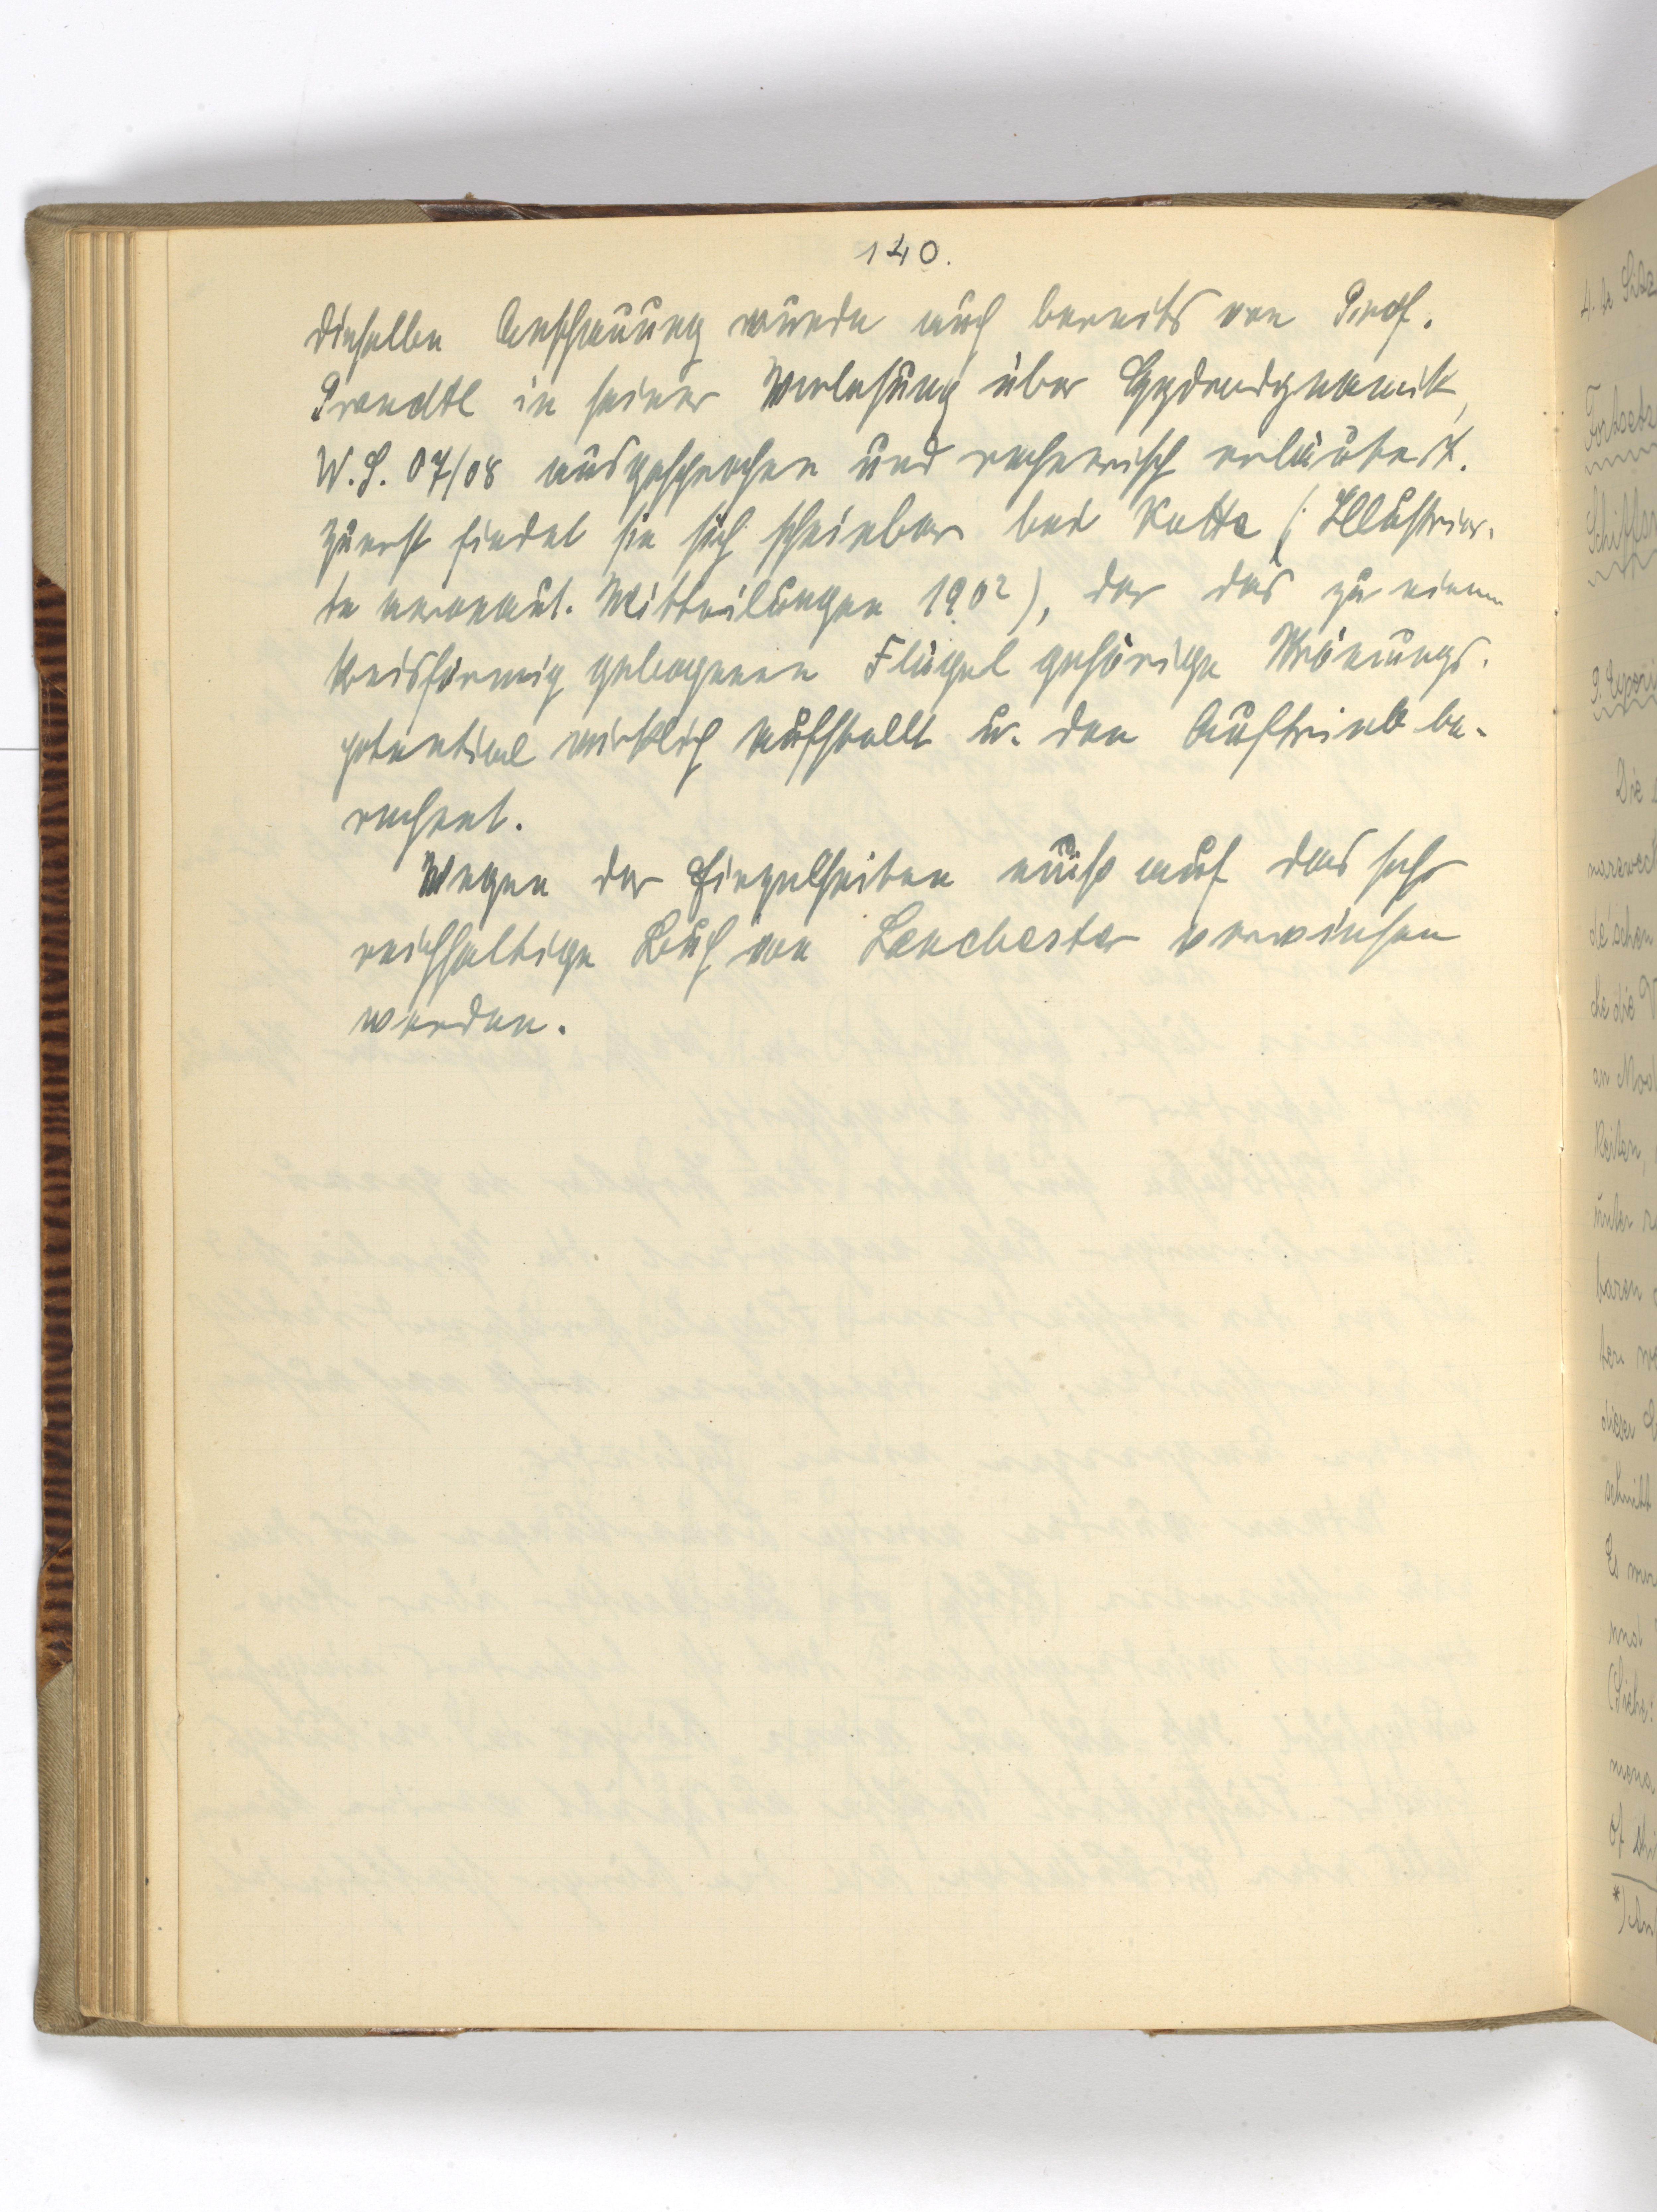 140.
dieselben Anschauung wurde auch bereits von Prof.
Prandtl in seiner Vorlesung über Hydrodynamik,
W.S. 07/08 ausgesprochen und rechnerisch erläutert.
Zuerst findet sie sich scheinbar bei Kutta (Illustrier-
te aeronaut. Mitteilungen 1902), der das zu einem
kreisförmig gebogenen Flügel gehörige Strömungs-
potential wirklich aufstellt u. den Auftrieb be-
rechnet.
Wegen der Einzelheiten muß auf das sehr
reichhaltige Buch von Lanchester verwiesen
werden.